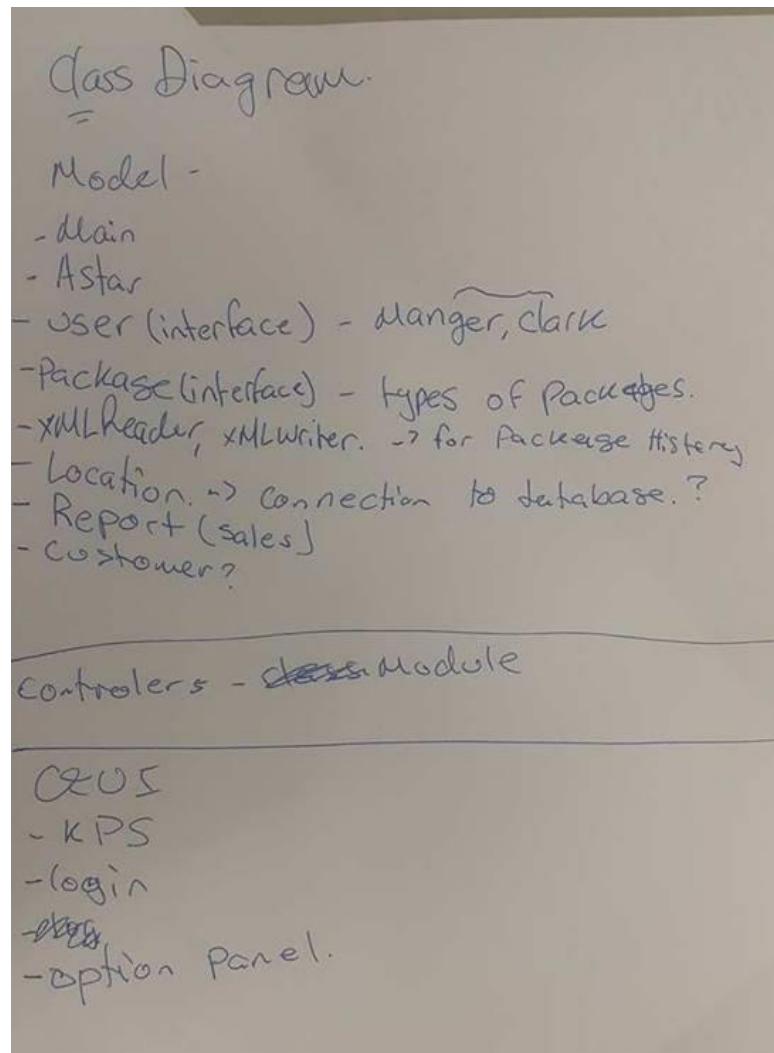 Class Diagram.
Model -
- Main
- Astar
- User (interface) - Manger, clark
- Package (interface) - types of Packages.
- XMLReader, XMLWriter. -> for Package History
- Location. -> Connection to database. ?
- Report (sales)
- Customer?
Controlers - Module
GUI
- KPS
- login
- option Panel.